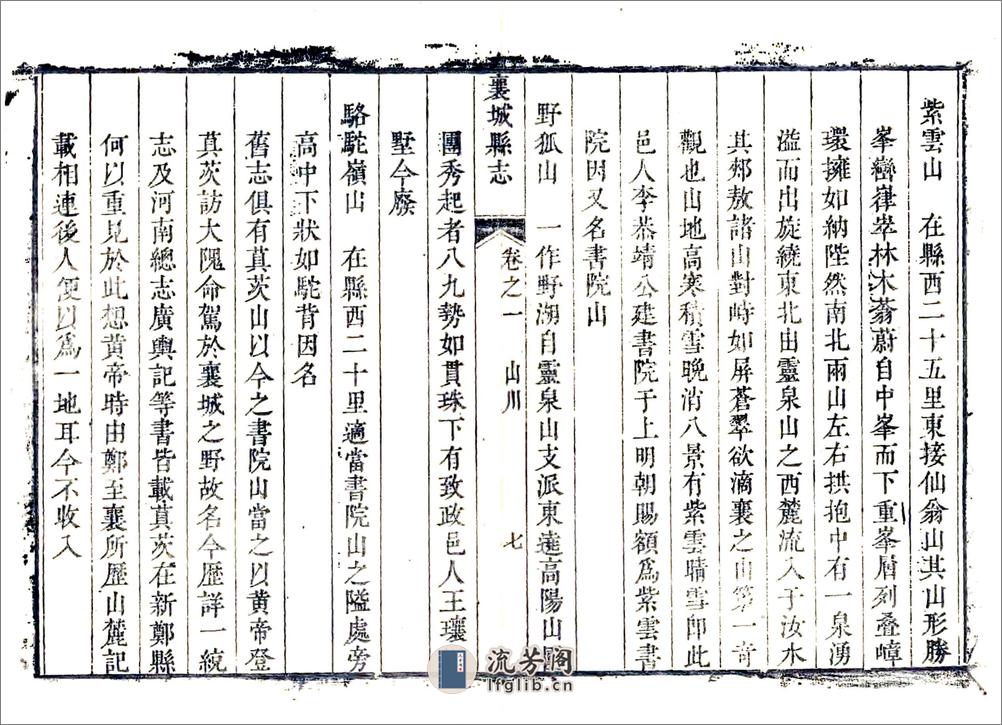 紫雲山　在縣西二十五里東接仙翁山其山形勝
峯巒嵂崒林木蓊蔚自中峯而下重峯層列叠嶂
環擁如納陛然南北兩山左右拱抱中有一泉湧
溢而出旋繞東北出靈泉山之西麓流入于汝水
其郊敖諸山對峙如屏蒼翠欲滴襄之山第一奇
觀也山地高寒積雪晚消八景有紫雲晴雪卽此
邑人李恭靖公建書院于上明朝賜額爲紫雲書
院因又名書院山
野狐山　一作野湖自靈泉山支派東達高陽山
襄城縣志　卷之一　山川　七
團秀起者八九勢如貫珠下有致政邑人王瓖
墅今廢
駱駝嶺山　在縣西二十里適當書院山之隘處旁
高中下狀如駝背因名
舊志俱有具茨山以今之書院山當之以黄帝登
具茨訪大隗命駕於襄城之野故名今歷詳一統
志及河南總志廣輿記等書皆載具茨在新鄭縣
何以重見於此想黄帝時由鄭至襄所歷山麓記
載相連後人便以爲一地耳今不收入
流芳阁
lfglib.cn